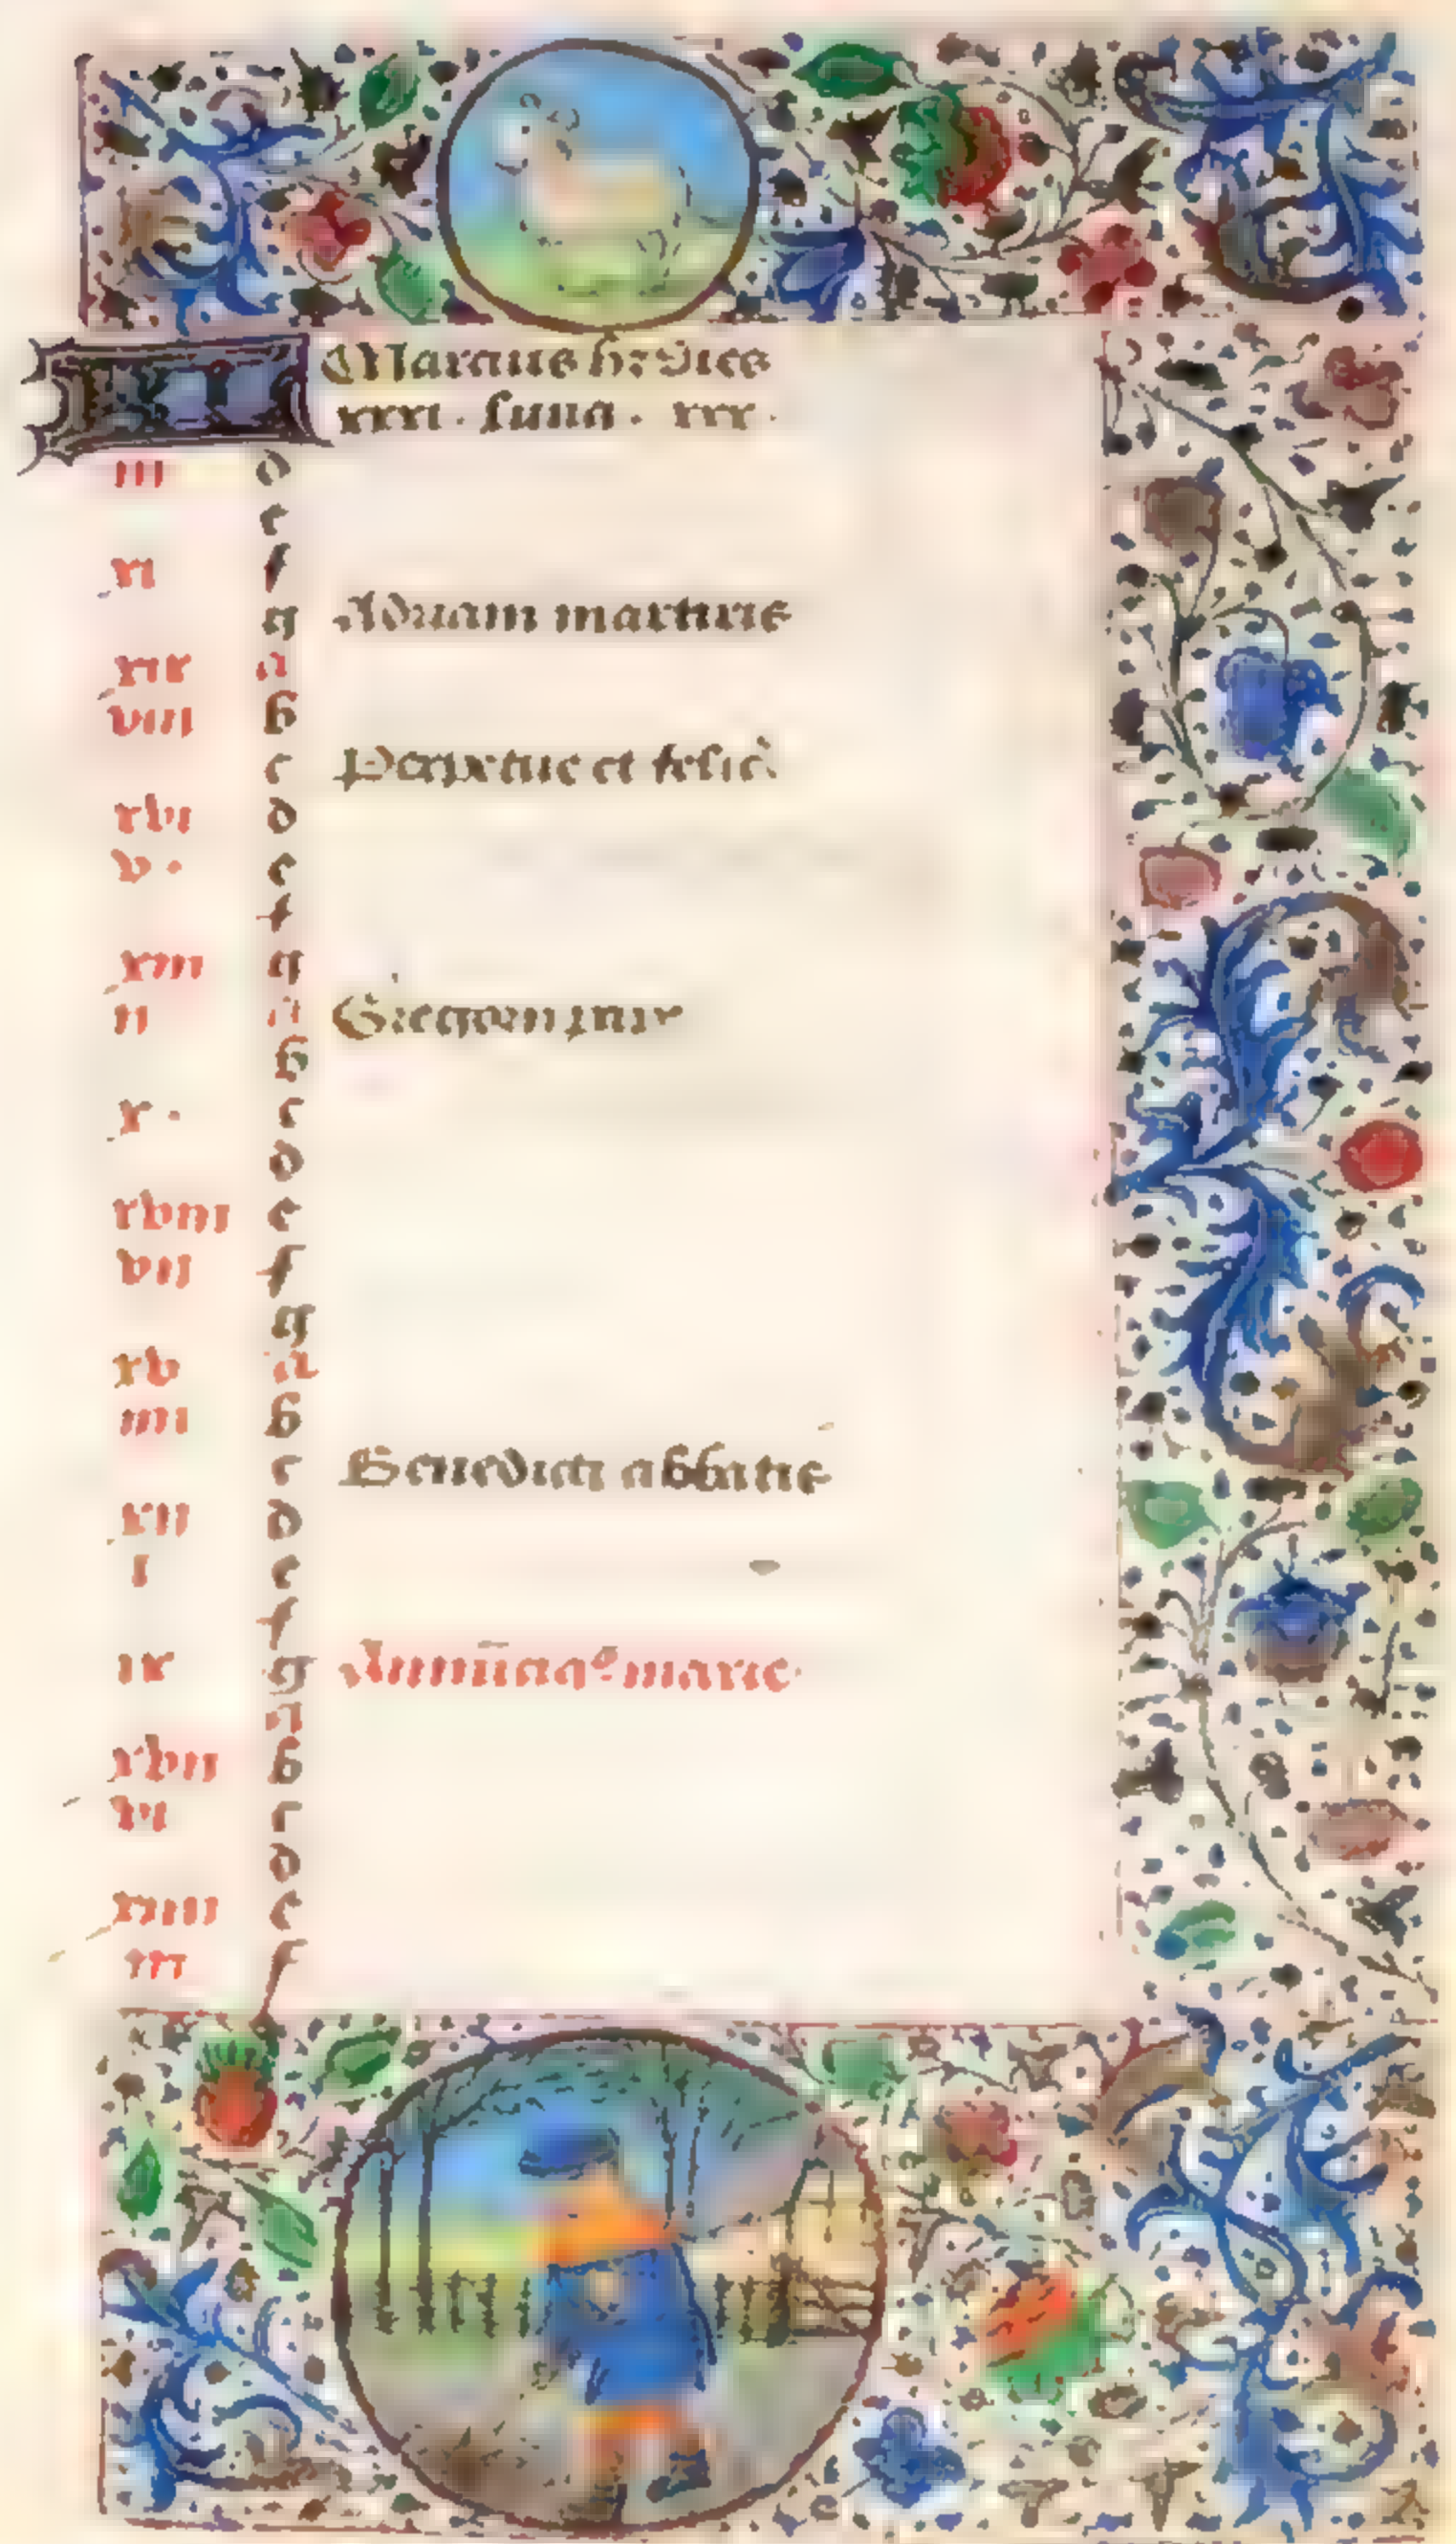 KL Marcius h; dies
xxxi . luna . xxx .
iii d
e
xi f
g Adriani martiris
xix a
viii b
c Perpetue et felic̄
xvi d
v · e
f
xiii g
ii a Gregorii pape
b
x · c
d
xviii e
vii f
g
xv a
iiii b
c Benedicti abbatis
xii d
i e
f
ix g Annūciaꝰ marie
a
xvii b
vi c
d
xiiii e
iii f